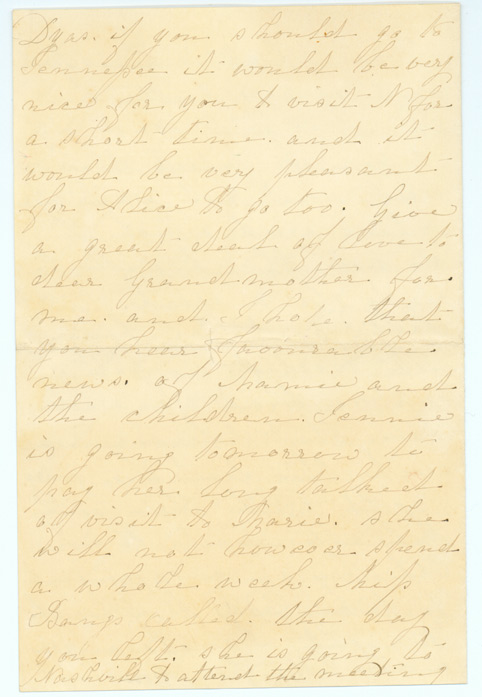 Dyas. if you should go to
Tennessee it would be very
nice for you to visit N for
a short time. and it
would be very pleasant
for Alice to go too. Give
a great deal of love to
dear Grandmother for.
me. and I hope. that
you hear favourable
news. of Mamie and
the children. Jennie
is going tomorrow to
pay her long talked
of visit to Marie. she
will not however spend
a whole week. Miss
Bangs called. the day
you left. she is going to
Nashville to attend the meeting